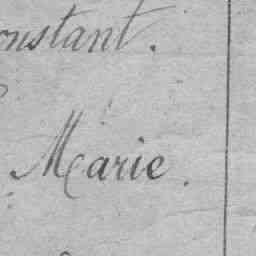 onstant.
Marie.